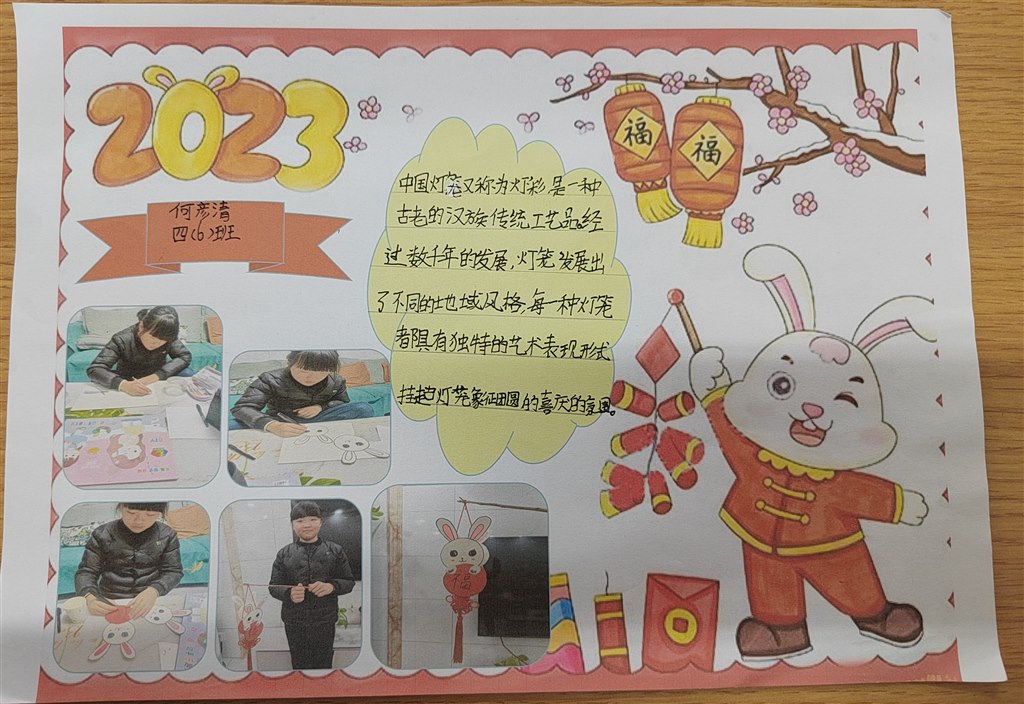 2023
何彦清
四(6)班
福
福
中国灯笼又称为灯彩,是一种
古老的汉族传统工艺品。经
过数千年的发展,灯笼发展出
了不同的地域风格,每一种灯笼
都具有独特的艺术表现形式
挂起灯笼象征团圆的喜庆的氛围。
福